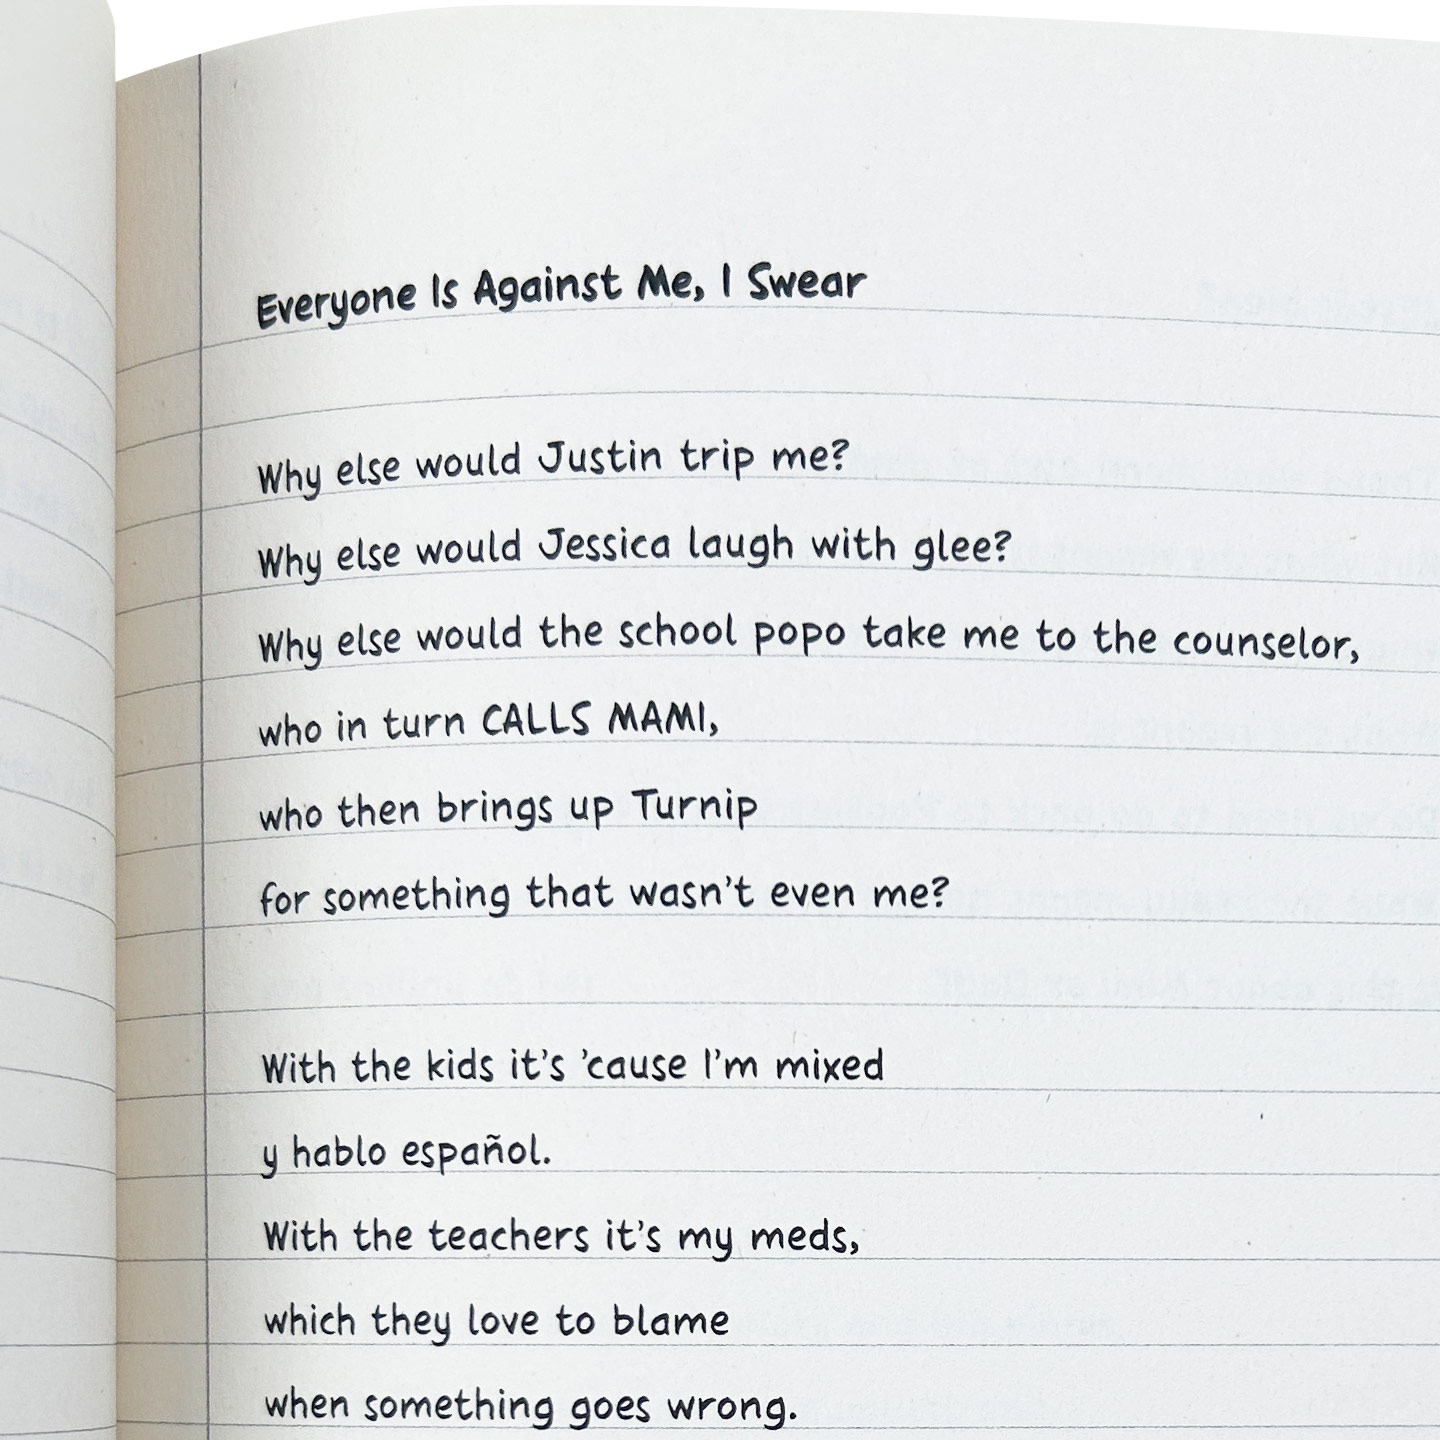 Everyone Is Against Me, I Swear
Why else would Justin trip me?
Why else would Jessica laugh with glee?
Why else would the school popo take me to the counselor,
who in turn CALLS MAMI,
who then brings up Turnip
for something that wasn't even me?
With the kids it's 'cause I'm mixed
y hablo español.
With the teachers it's my meds,
which they love to blame
when something goes wrong.